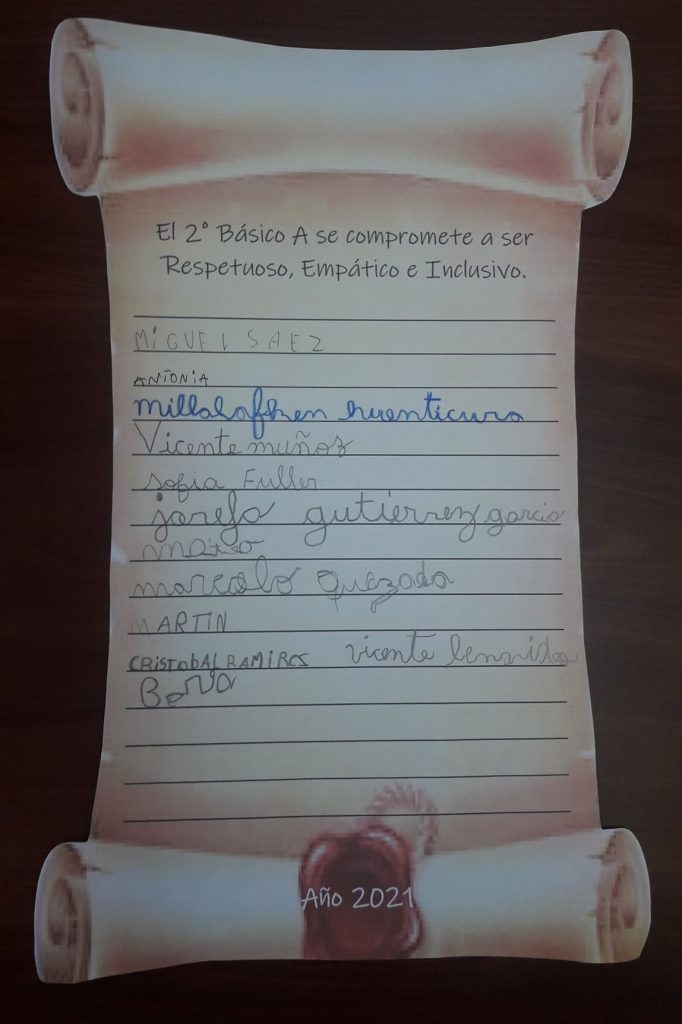 El 2° Básico A se compromete a ser
Respetuoso, Empático e Inclusivo.
MiGUEl SAEZ
ANTONiA
millalafken huenticura
Vicente muñoz
sofia Fuller
josefa gutierrez garcia
mateo
marcelo quezada
MARTIN
CRISTObAL RAMIRES vicente
Año 2021